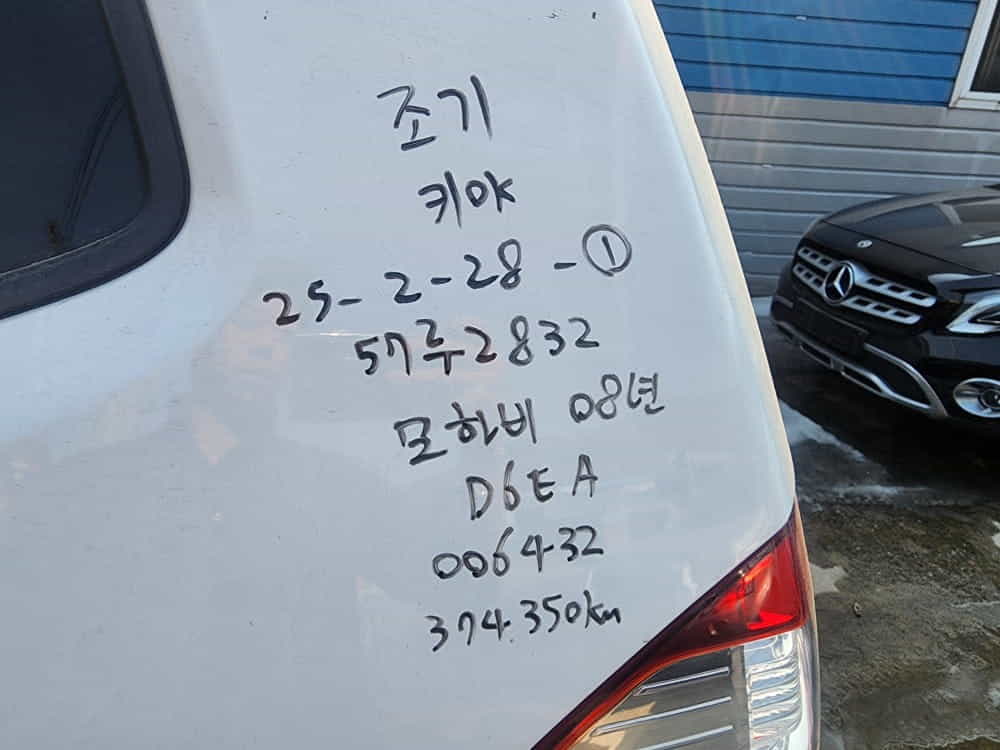 조기
키OK
25-2-28-①
57루2832
모하비 08년
D6EA
0064432
374.350km